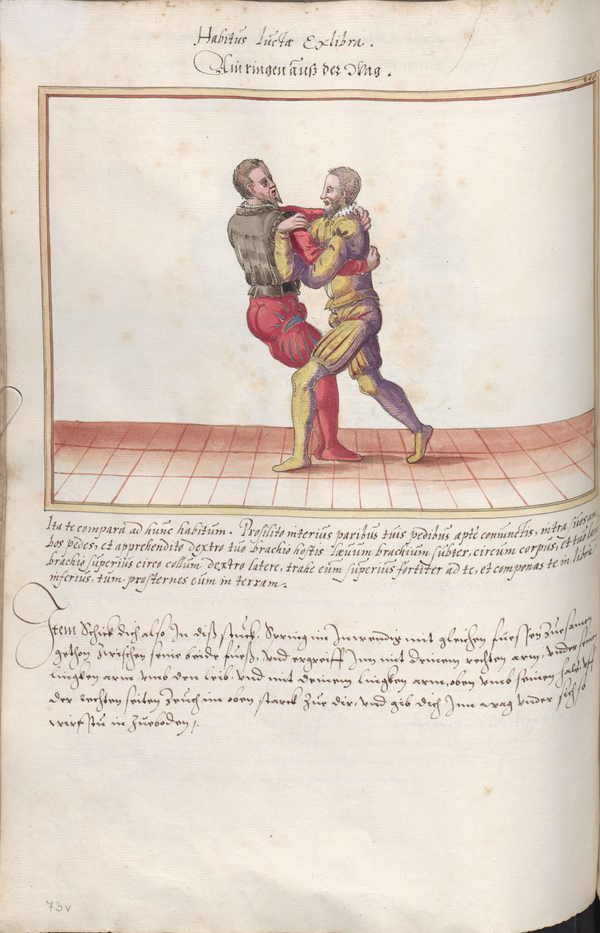 Habitus luctæ Exlibra.
Ain ringen auß der Wag.
Ita te compara ad hunc habitum. Prosilito interius paribus tuis pedibus apte coniunctis, intra suos am
bos pedes, et apprehendito dextro tuo brachio hostis læuum brachium subter, circum corpus, et tuo læuo
brachio superius circo collum dextro latere, trahe eum superius fortiter ad te, et componas te in libra
inferius, tum prosternes eum in terram.
Item Schick dich also In diß stuck, Spring im Inwendig mit gleichen fuessen zuesamen
gethon zwischen seine beide fueß, vnd ergreiff Inn mit deinem rechten arm, vnder seinem
lingken arm vmb den leib, vnd mit deinem lingken arm, oben vmb seinen halß, vff
der rechten seiten Zeuch im oben starck zue dir, vnd gib dich Inn wag vnder sich so
wirfstu in zueboden.
73v